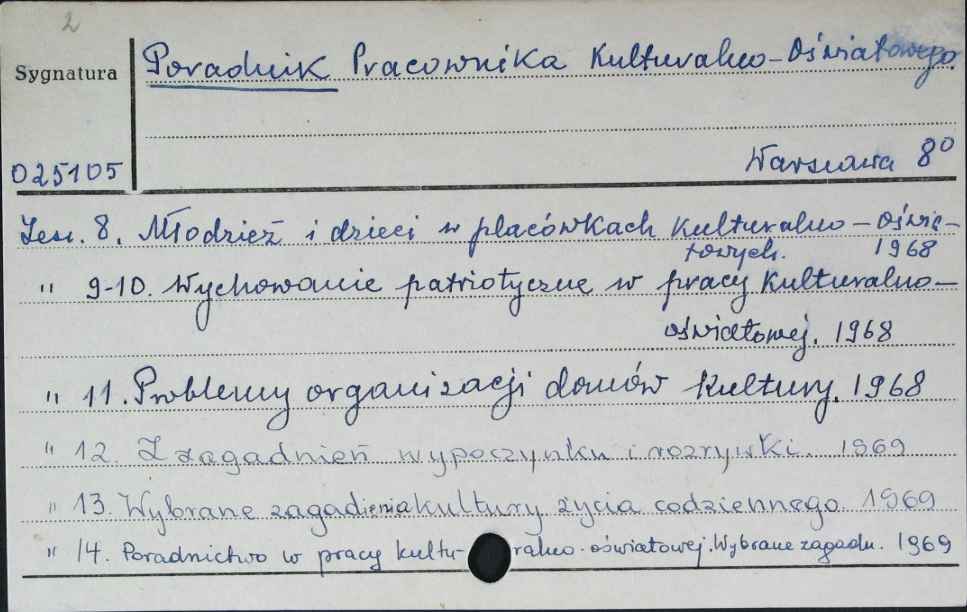 2
Sygnatura
Poradnik Pracownika Kulturalno-Oświatowego.
025105
Warszawa 8°
Zesz. 8. Młodzież i dzieci w placówkach Kulturalno-oświa-
towych. 1968
" 9-10. Wychowanie patriotyczne w pracy Kulturalno-
oświatowej. 1968
" 11. Problemy organizacji domów Kultury. 1968
" 12. Z zagadnień wypoczynku i rozrywki. 1969
" 13. Wybrane zagadienia kultury życia codziennego. 1969
" 14. Poradnictwo w pracy kultu-ralno-oświatowej. Wybrane zagadn. 1969